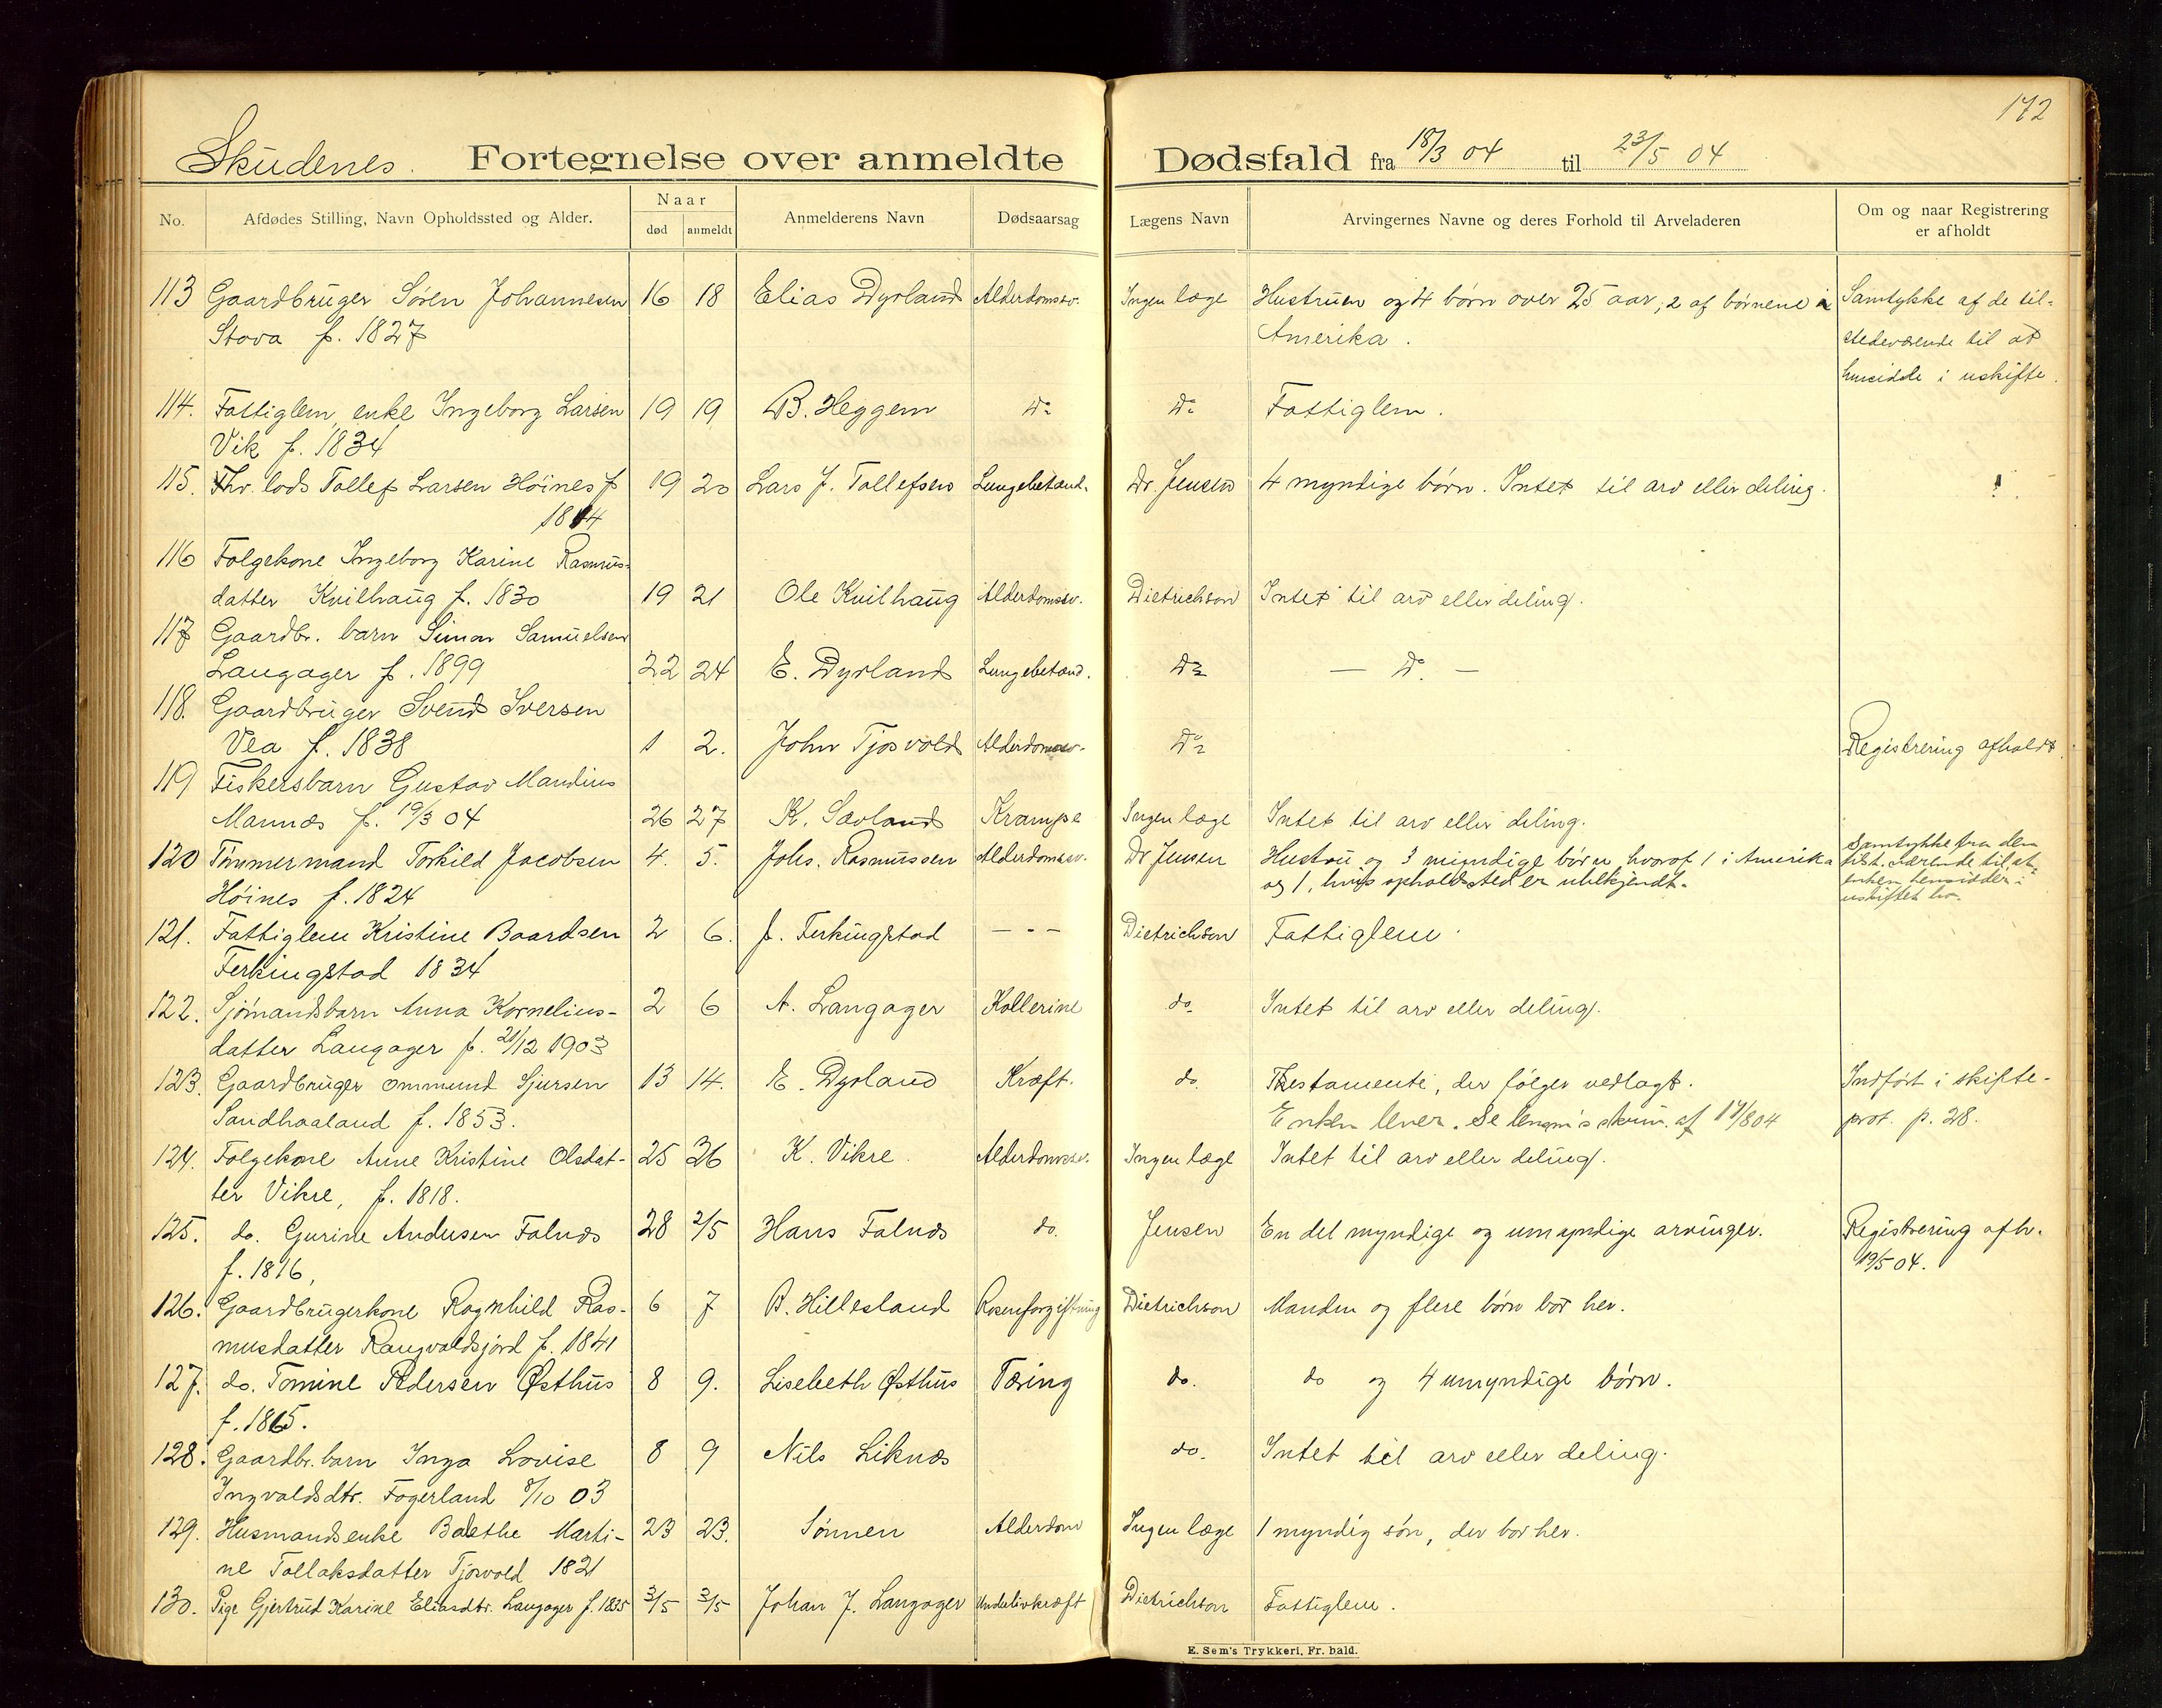 172
Skudenes. Fortegnelse over anmeldte Dødsfald fra 18/3 04 til 23/5 04
No. Afdødes Stilling, Navn Opholdssted og Alder. Naar død anmeldt Anmelderens Navn Dødsaarsag Lægens Navn Arvingernes Navne og deres Forhold til Arveladeren Om og naar Registrering er afholdt
113 Gaardbruger Søren Johannesen 16 18 Elias Dyrland Alderdomssv. Ingen læge Hustruen og 4 børn over 25 aar, 2 af børnene i Samtykke af de til-
Stava f. 1827 Amerika. stedeværende til at
hensidde i uskifte.
114. Fattiglem, enke Ingeborg Larsen 19 19 B. Heggem Do Do Fattiglem.
Vik f. 1834
115. Fhv. lods Tollef Larsen Høines f 19 20 Lars J. Tollefsen Lungebetænd. Dr. Jensen 4 myndige børn. Intet til arv eller deling.
1814
116 Folgekone Ingeborg Karine Rasmus-
datter Kvilhaug f. 1830 19 21 Ole Kvilhaug Alderdomssv. Dietrichson Intet til arv eller deling.
117 Gaardbr. barn Simon Samuelsen
Langager f. 1899 22 24 E. Dyrland Lungebetænd. Do — Do —
118. Gaardbruger Svend Iversen
Vea f. 1838 1 2. John Tjosvold Alderdomssv. Do Registrering afholdt.
119 Fiskersbarn Gustav Mandius
Mannes f. 19/3 04 26 27 K. Sævland Krampe Ingen læge Intet til arv eller deling.
120 Tømmermand Torkild Jacobsen 4. 5. Johs. Rasmussen Alderdomssv. Dr Jensen Hustru og 3 myndige børn, hvoraf 1 i Amerika Samtykke fra dem
Høines f. 1824 og 1, hvis opholdssted er ubekjendt. tilst. værende til at
enken hensidder i
uskiftet bo.
121. Fattiglem Kristine Baardsen 2 6. J. Ferkingstad — " — Dietrichson Fattiglem.
Ferkingstad 1834
122. Sjømandsbarn Anna Kornelius- 2 6 A. Langager Kollerine do. Intet til arv eller deling.
datter Langager f. 21/12 1903
123. Gaardbruger Ommund Sjursen 13 14. E. Dyrland Kræft. do. Testamente, der følger vedlagt. Indført i skifte-
Sandhaaland f. 1853. Enken lever. Se lensm's skriv. af 17/8 04 prot. p. 28.
124. Folgekone Anne Kristine Olsdat- 25 26 K. Vikre. Alderdomssv. Ingen læge Intet til arv eller deling.
ter Vikre, f. 1818.
125. do. Gurine Andersen Falnes 28 2/5 Hans Falnes do. Jensen En del myndige og umyndige arvinger. Registrering afh.
f. 1816, 19/5 04.
126. Gaardbrugerkone Ragnhild Ras- 6 7 B. Hillesland Rosenforgiftning Dietrichson Manden og flere børn bor her.
musdatter Rangvaldsjord f. 1841
127. do. Tomine Pedersen Østhus 8 9. Lisebeth Østhus Tæring do. do og 4 umyndige børn.
f. 1865.
128. Gaardbr. barn Inga Lovise 8 9 Nils Liknes do. Intet til arv eller deling.
Ingvaldsdtr. Fagerland 8/10 03
129. Husmandsenke Balethe Marti- 23 23. Sønnen Alderdom Ingen læge 1 myndig søn, der bor her.
ne Tollaksdatter Tjosvold 1821
130. Pige Gjertrud Karine Eliasdtr. Langager f. 1835 3/5 3/5 Johan J. Langager Underlivkræft Dietrichson Fattiglem.
E. Sem's Trykkeri, Fr. hald.